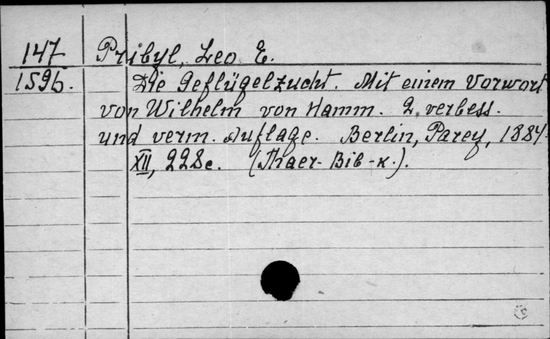 147 Pribyl, Leo E.
1596. Die Geflügelzucht. Mit einem Vorwort
von Wilhelm von Hamm. 2. verbess.
und verm. Auflage. Berlin, Parey, 1884.
XII, 228 c. (Thaer-Bib-к.).